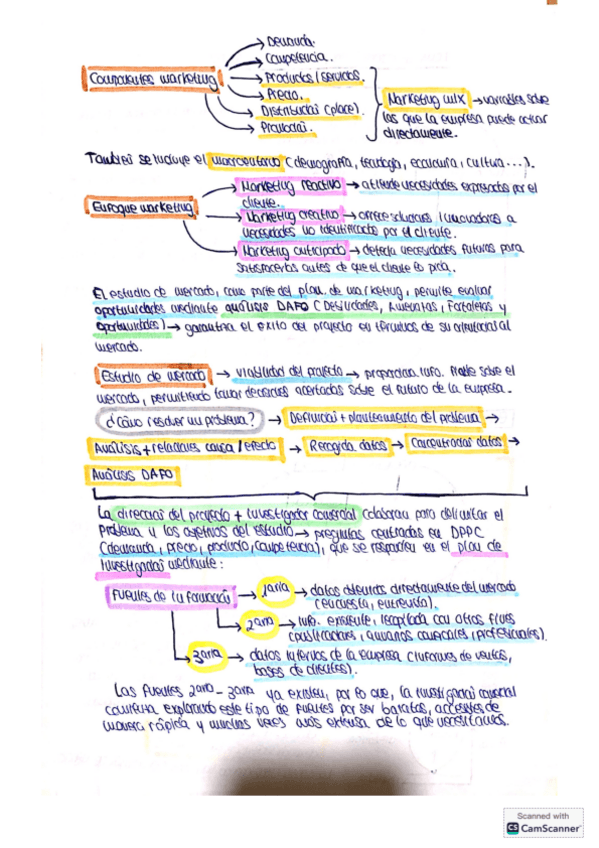 Demanda.
Competencia.
Componentes marketing
Productos/servicios.
Precio.
Distribución (place).
Promoción.
Marketing mix → variables sobre
las que la empresa puede actuar
directamente.
También se incluye el macroentorno (demografía, tecnología, economía, cultura...).
Marketing reactivo → atiende necesidades expresadas por el
cliente.
Enfoque marketing
Marketing creativo → ofrece soluciones innovadoras a
necesidades no identificadas por el cliente.
Marketing anticipado → detecta necesidades futuras para
satisfacerlas antes de que el cliente lo pida.
El estudio de mercado, como parte del plan de marketing, permite evaluar
oportunidades mediante análisis DAFO (Debilidades, Amenazas, Fortalezas y
oportunidades) → garantiza el éxito del proyecto en términos de su orientación al
mercado.
Estudio de mercado → viabilidad del proyecto → proporciona info. fiable sobre el
mercado, permitiendo tomar decisiones acertadas sobre el futuro de la empresa.
¿Cómo resolver un problema? → Definición + planteamiento del problema →
Análisis + relaciones causa/efecto → Recogida datos → Concentración datos →
Análisis DAFO
La dirección del proyecto + investigador comercial colaboran para delimitar el
problema y los objetivos del estudio → preguntas centradas en DPPC
(demanda, precio, producto, competencia), que se responden en el plan de
investigación mediante:
Fuentes de información → 1aria → datos obtenidos directamente del mercado
(encuesta, entrevista).
2aria → info. existente, recopilada con otros fines
(publicaciones, anuarios comerciales, profesionales).
3aria → datos internos de la empresa (informes de ventas,
bases de clientes).
Las fuentes 2aria - 3aria ya existen, por lo que, la investigación comercial
comienza explorando este tipo de fuentes por ser baratas, accesibles de
manera rápida y muchas veces más extensa de lo que necesitamos.
Scanned with
CS CamScanner